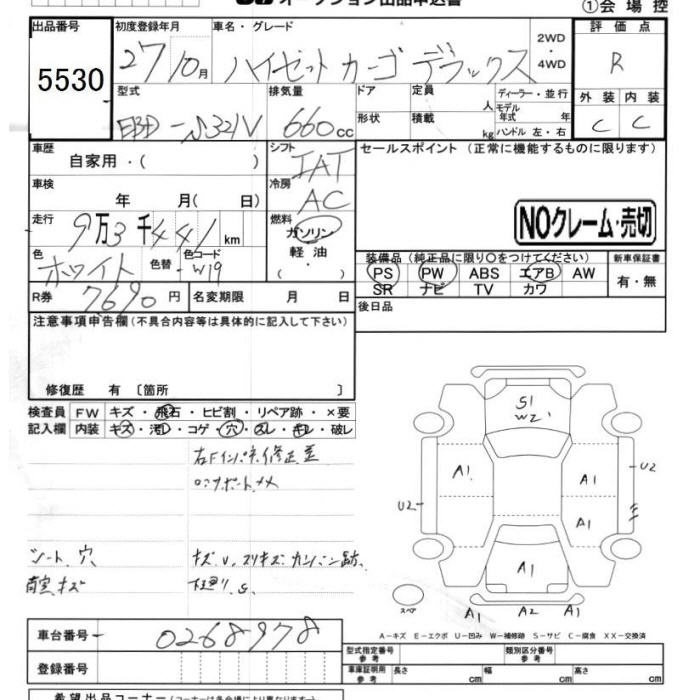 オークション出品申込書
①会場控
出品番号
5530
初度登録年月
27/10月
車名・グレード
ハイゼット カーゴ デラックス
2WD
・
4WD
評価点
R
型式
EBD-S321V
排気量
660cc
ドア
定員
人
ディーラー・並行
形状
積載
kg
モデル年式
年
ハンドル 左・右
外装
内装
C
C
車歴
自家用・( )
シフト
IAT
セールスポイント (正常に機能するものに限ります)
車検
年 月( 日)
冷房
AC
NOクレーム・売切
走行
9万3千441km
燃料
ガソリン
・
軽油
( )
色
ホワイト
色替
色コード
W19
装備品 (純正品に限り○をつけてください)
PS PW ABS エアB AW
SR ナビ TV カワ
新車保証書
有・無
R券
7690円
名変期限
月 日
後日品
注意事項申告欄 (不具合内容等は具体的に記入して下さい)
修復歴 有 〔箇所 〕
検査員記入欄
FW キズ・飛石・ヒビ割・リペア跡・×要
内装 キズ・汚レ・コゲ・穴・スレ・キレ・破レ
右Fインパネ修正歪
コアサポートメメ
シート 穴
荷室 キズ
キズ U. スリキズ カンバン跡.
下廻り S.
S1
W2
A1
A1
A1
A1
U2
U2
A1
A1
A2
A1
スペア
A-キズ E-エクボ U-凹み W-補修跡 S-サビ C-腐食 XX-交換済
車台番号
0268978
登録番号
型式指定番号
参考
類別区分番号
参考
車庫証明用
参考
長さ cm
幅 cm
高さ cm
希望出品コーナー